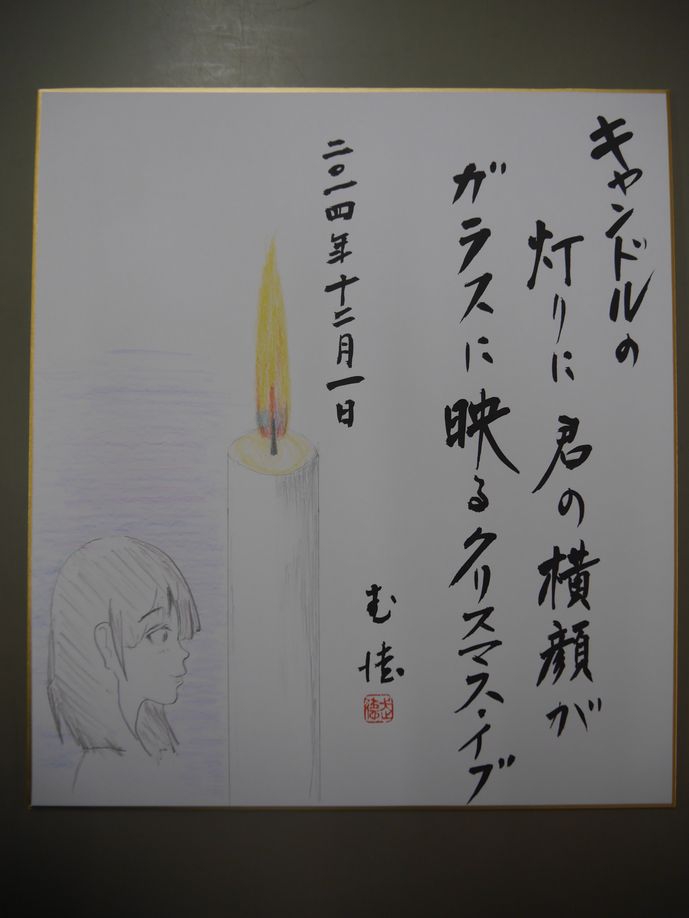 キャンドルの
灯りに君の横顔が
ガラスに映るクリスマス・イブ
二〇一四年十二月一日